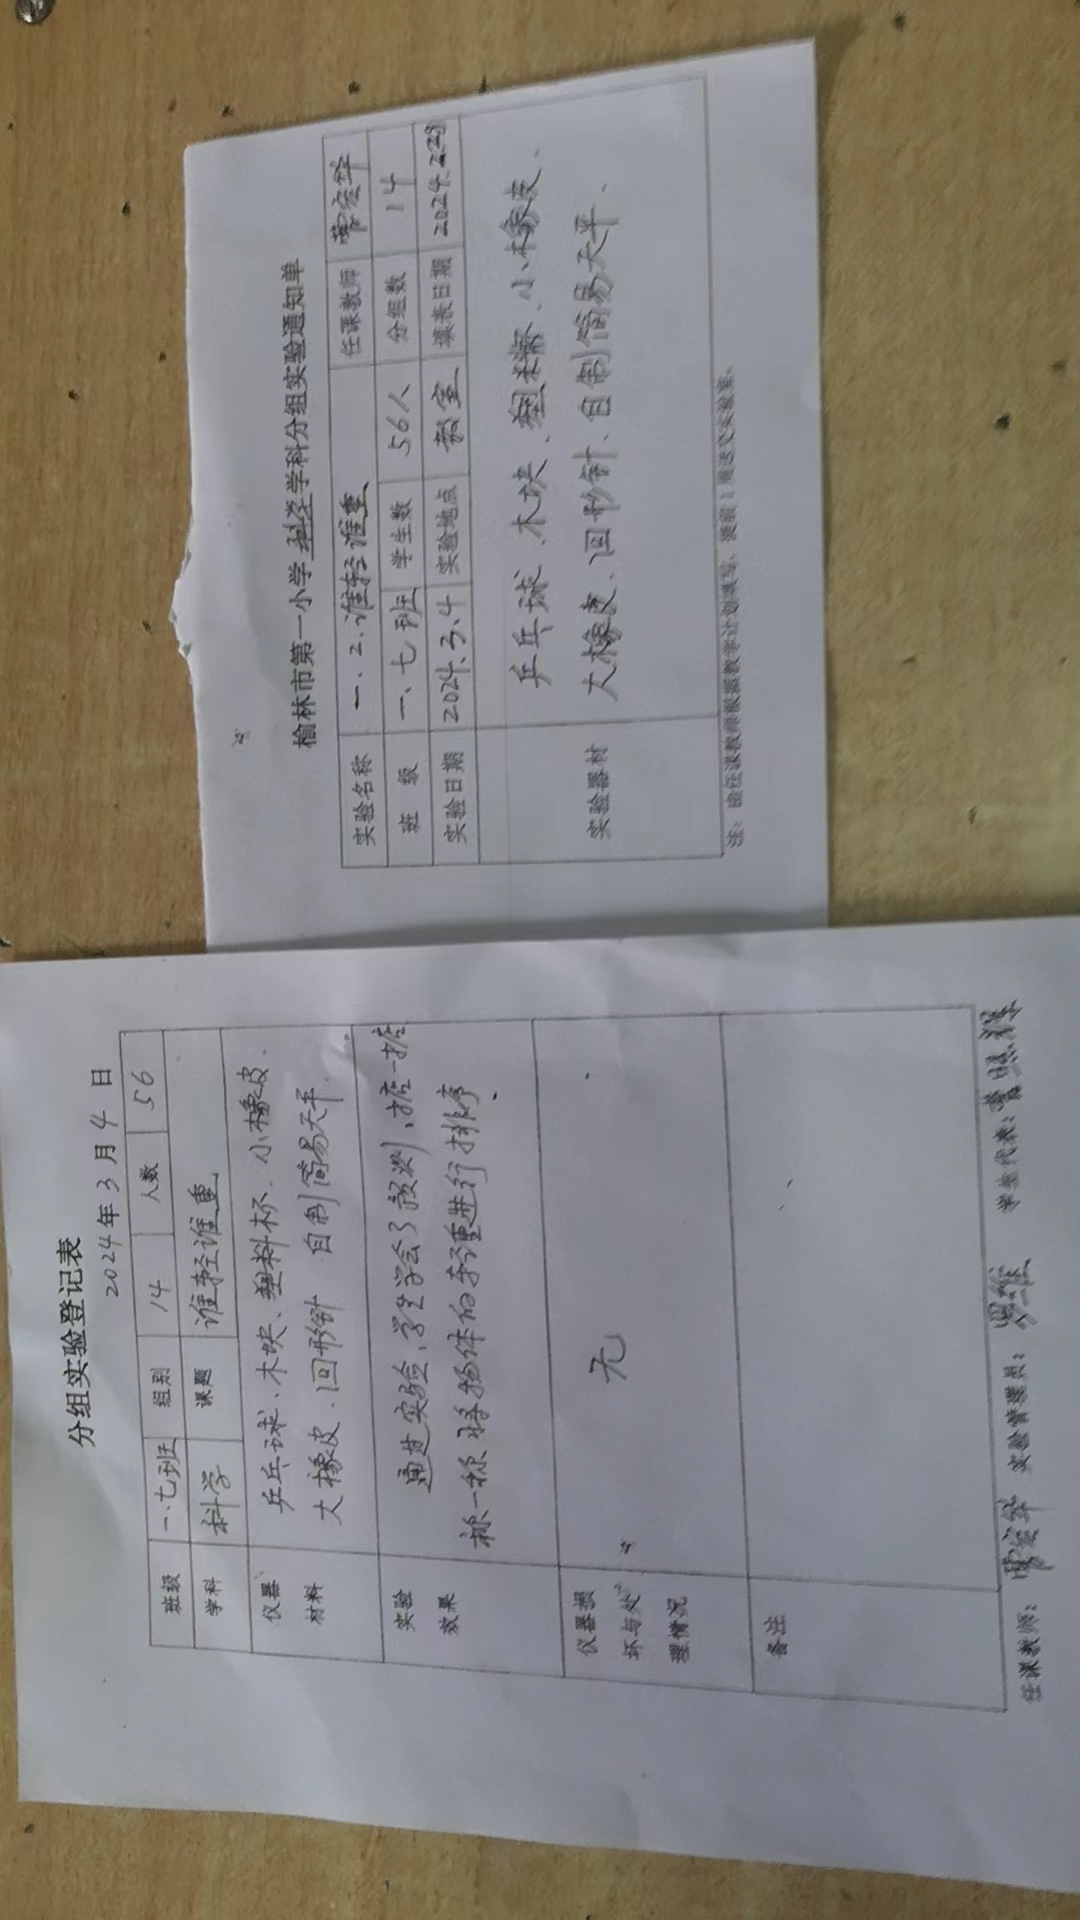 分组实验登记表
2024年3月4日
班级 一、七班 组别 14 人数 56
学科 科学 课题 谁轻谁重
仪器材料 乒乓球、木块、塑料杯、小橡皮、
大橡皮、回形针 自制简易天平
实验效果 通过实验,学生学会了预测,掂一掂
称一称将物体的轻重进行排序.
仪器损坏与处理情况 无
备注
任课教师: 实验管理员: 学生代表:
榆林市第一小学科学学科分组实验通知单
实验名称 一.2.谁轻谁重 任课教师
班级 一、七班 学生数 56人 分组数 14
实验日期 2024.3.4 实验地点 教室 填表日期 2024.2.28
实验器材 乒乓球、木块、塑料杯、小橡皮、
大橡皮、回形针、自制简易天平、
注:由任课教师根据教学计划填写,提前1周送交实验室。